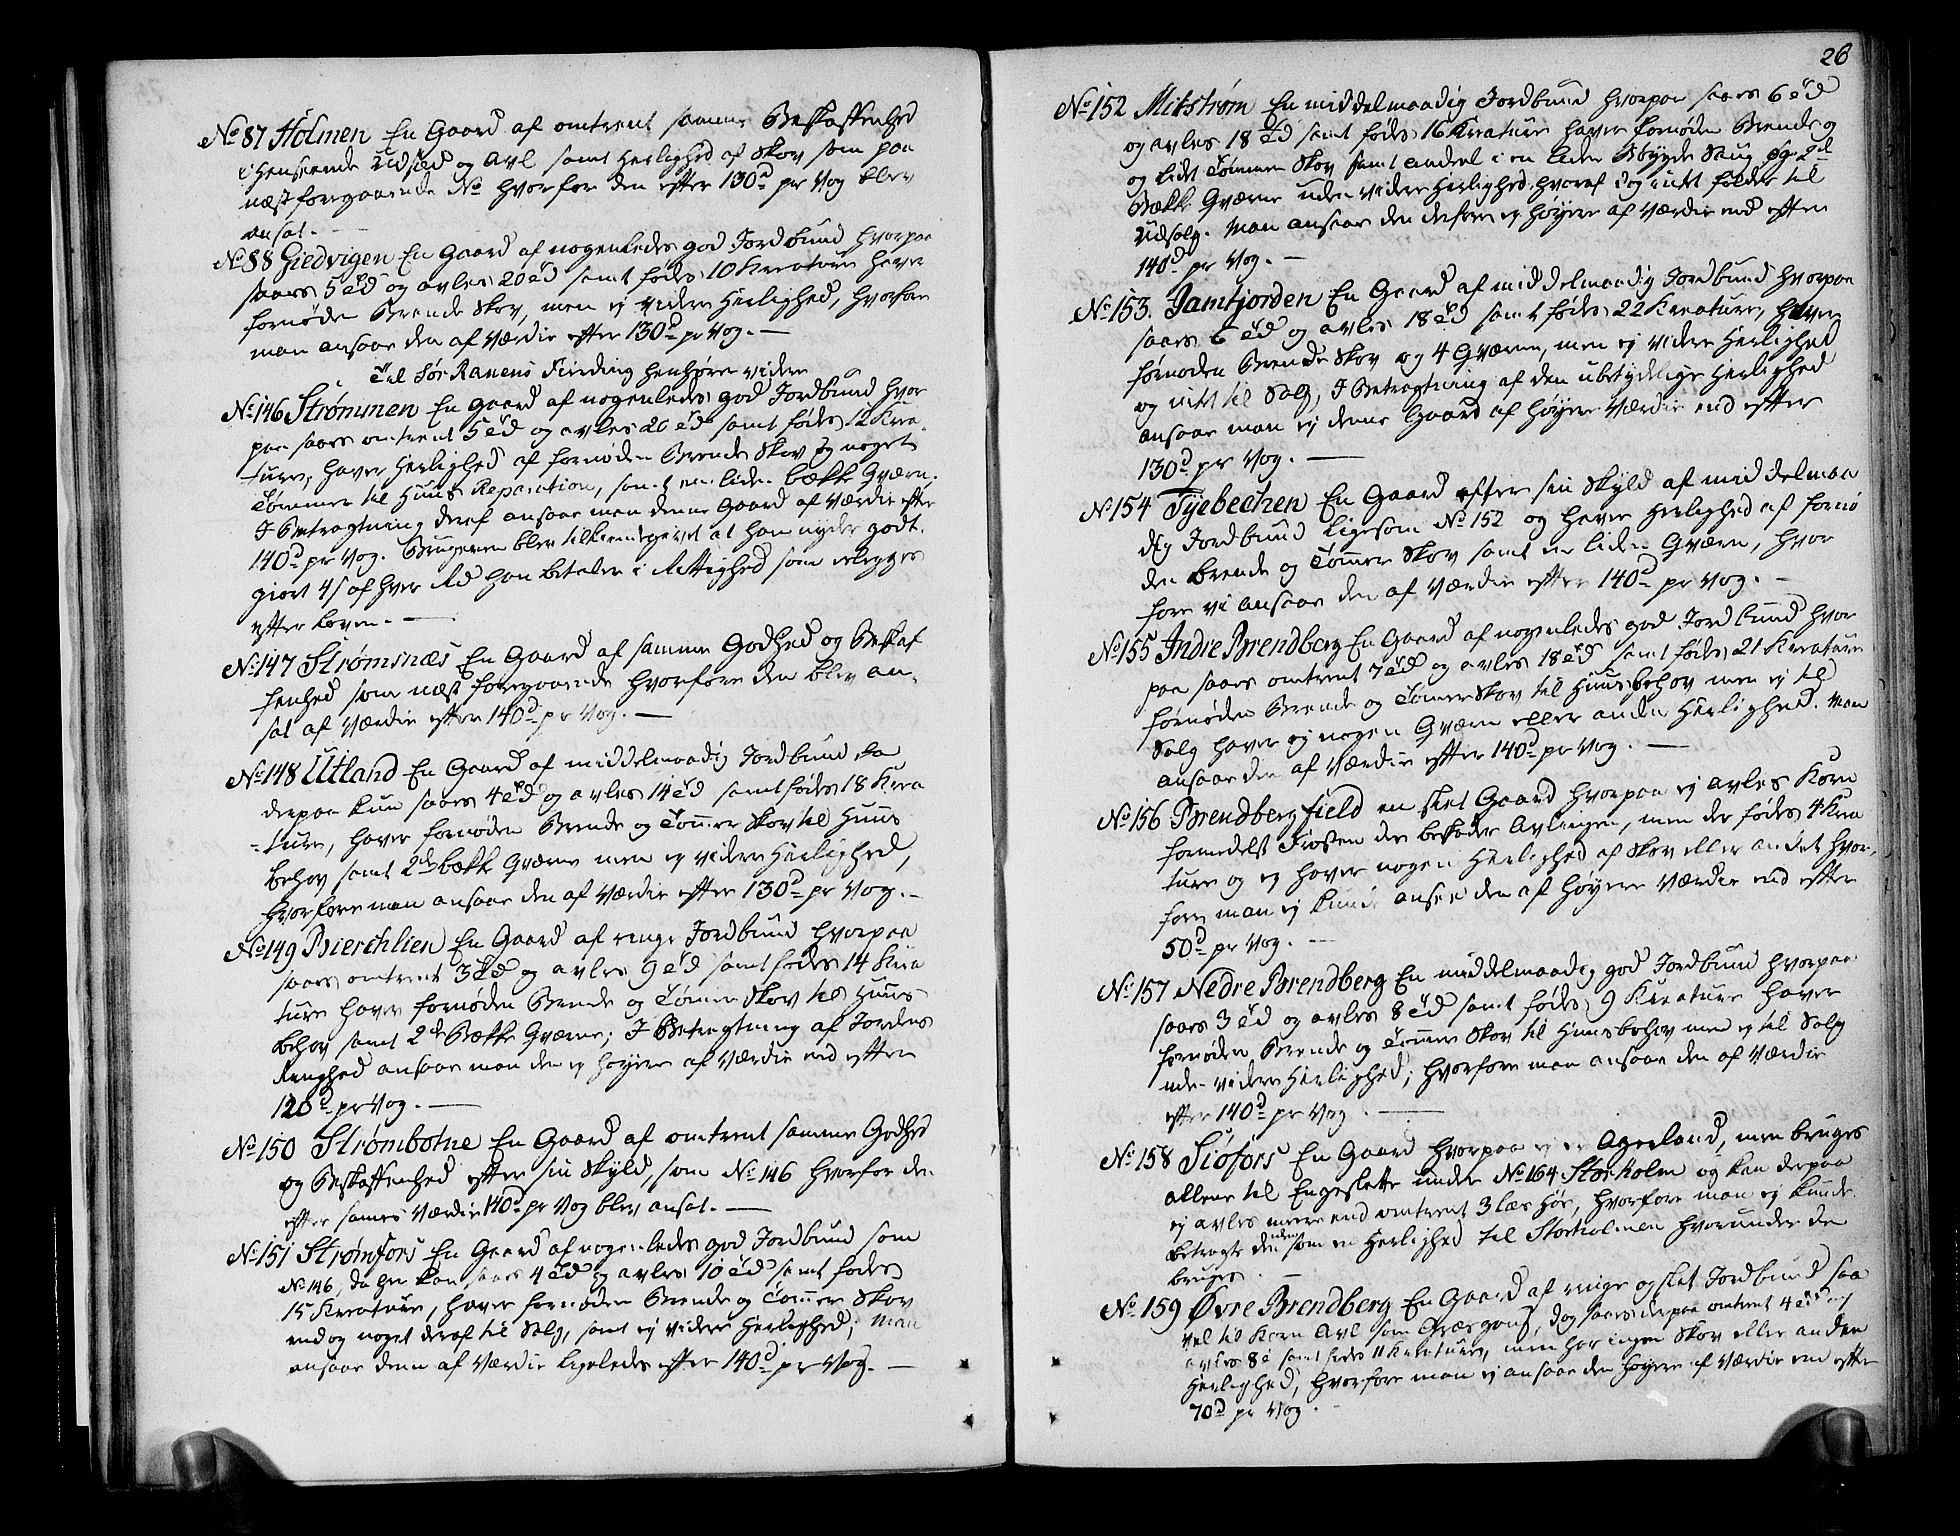 No 87 Holmen En Gaard af omtrent samme Beskaffenhed
i Henseende Udsæd og Avl samt Herlighed af Skov som paa
næst foregaaende No hvorfore den efter 130d pr Vog blev
ansat. -
No 88 Giedvigen En Gaard af nogenledes god Jordbund hvorpaa
saaes 5 td og avles 20 td samt fødes 10 Kreature haver
fornøden Brende Skov, men ej videre Herlighed, hvorfore
man ansaae den af Værdie efter 130d pr Vog. -
Til Sør Ranens Finding henhører videre
No 146 Strømmen En Gaard af nogenledes god Jordbund hvor
paa saaes omtrent 5 td og avles 20 td samt fødes 12 Krea-
ture, haver Herlighed af fornøden Brende Skov og noget
Tømmer til Huus Reparation, samt en liden bække Gværn.
I Betragtning deraf ansaae man denne Gaard af Værdie efter
140d pr Vog. Brugeren blev tilkiendegivet at han nyder godt-
giort 4 s af hver Rd han betaler i Rettighed som erlegges
efter Loven. -
No 147 Strømsnæs En Gaard af samme Godhed og Beskaf
fenhed som næst foregaaende hvorfore den blev an-
sat af Værdie efter 140d pr Vog. -
No 148 Utland En Gaard af middelmaadig Jordbund da
derpaa kun saaes 4 td og avles 14 td samt fødes 18 Krea
-ture, haver fornøden Brende og Tømmer Skov til Huus
behov samt 2de bække Gværne men ej videre Herlighed,
Hvorfore man ansaae den af Værdie efter 130d pr Vog. -
No 149 Bierchlien En Gaard af ringe Jordbund hvorpaa
saaes omtrent 3 td og avles 9 td samt fødes 14 Krea
ture haver fornøden Brende og Tømmer Skov til Huus
behov samt 2de Bække Gværne; I Betragtning af Jordens
Ringhed ansaae man den ej høyere af Værdie end efter
120d pr Vog. -
No 150 Strømbotne En Gaard af omtrent samme Godhed
og Beskaffenhed efter sin Skyld, som No 146 hvorfor den
efter sames Værdie 140d pr Vog blev ansat. -
No 151 Strømfors En Gaard af nogenledes god Jordbund som
No 146, da her kan saaes 4 td og avles 10 td samt fødes
15 Kreature, haver fornøden Brende og Tømmer Skov
end og noget deraf til Salg, samt ej videre Herlighed; Man
ansaae denne af Værdie ligeledes efter 140d pr Vog. -
26
No 152 Mitstrøm En middelmaadig Jordbund hvorpaa saaes 6 td
og avles 18 td samt fødes 16 Kreature haver fornøden Brende og
og lidt Tømmer Skov samt andeel i en liden Bøygde Saug og 2de
Bække Gværne uden videre Herlighed, hvoraf dog intet falder til
Udsalg. Man ansaae den derfore ej høyere af Værdie end efter
140d pr Vog. -
No 153. Jamtjorden En Gaard af middelmaadig Jordbund hvorpaa
saaes 6 td og avles 18 td samt fødes 22 Kreature, haver
fornøden Brende Skov og 4 Gværne, men ej videre Herlighed
og intet til Salg, I Betragtning af den ubetydelige Herlighed
ansaae man ej denne Gaard af høyere Værdie end efter
130d pr Vog. -
No 154 Tyebechen En Gaard efter sin Skyld af middelmaa
dig Jordbund ligesom No 152 og haver Herlighed af fornø
den brende og Tømmer Skov samt en liden Gværn, hvor
fore vi ansaae den af Værdie efter 140d pr Vog. -
No 155 Indre Brendberg En Gaard af nogenledes god Jordbund hvor
paa saaes omtrent 7 td og avles 18 td samt fødes 21 Kreature
fornøden Brende og Tømer Skov til Huusbehov men ej til
Salg haver ej nogen Gværn eller anden Herlighed. Man
ansaae den af Værdie efter 140d pr Vog. -
No 156 Brendbergfield en slet Gaard hvorpaa ej avles Korn
formedelst Frosten der beskader Avlingen, men der fødes 4 Krea
ture og ej haver nogen Herlighed af Skov eller andet hvor-
fore man ej kunde ansee den af høyere Værdie end efter
50d pr Vog. -
No 157 Nedre Brendberg En middelmaadig god Jordbund hvorpaa
saaes 3 td og avles 8 td samt fødes 9 Kreature haver
fornøden Brende og Tømmer Skov til Huusbehov men ej til Salg
uden videre Herlighed; hvorfore man ansaae den af Værdie
efter 140d pr Vog. -
No 158 Siøfors En Gaard hvorpaa ej er Agerland, men bruges
allene til Engeslette under No 164 Storholm og kan derpaa
ej avles meere end omtrent 3 læs Høe, hvorfore man ej kunde
betragte den uden som en Herlighed til Storholmen hvorunder den
bruges. -
No 159 Øvre Brendberg En Gaard af ringe og slet Jordbund saa
vel til Korn Avl som Græsgang, dog saaes derpaa omtrent 4 td og
avles 8 t samt fødes 11 Kreature, men har ingen Skov eller anden
Herlighed, hvorfore man ej ansaae den høyere af Værdie end efter
70d pr Vog. -